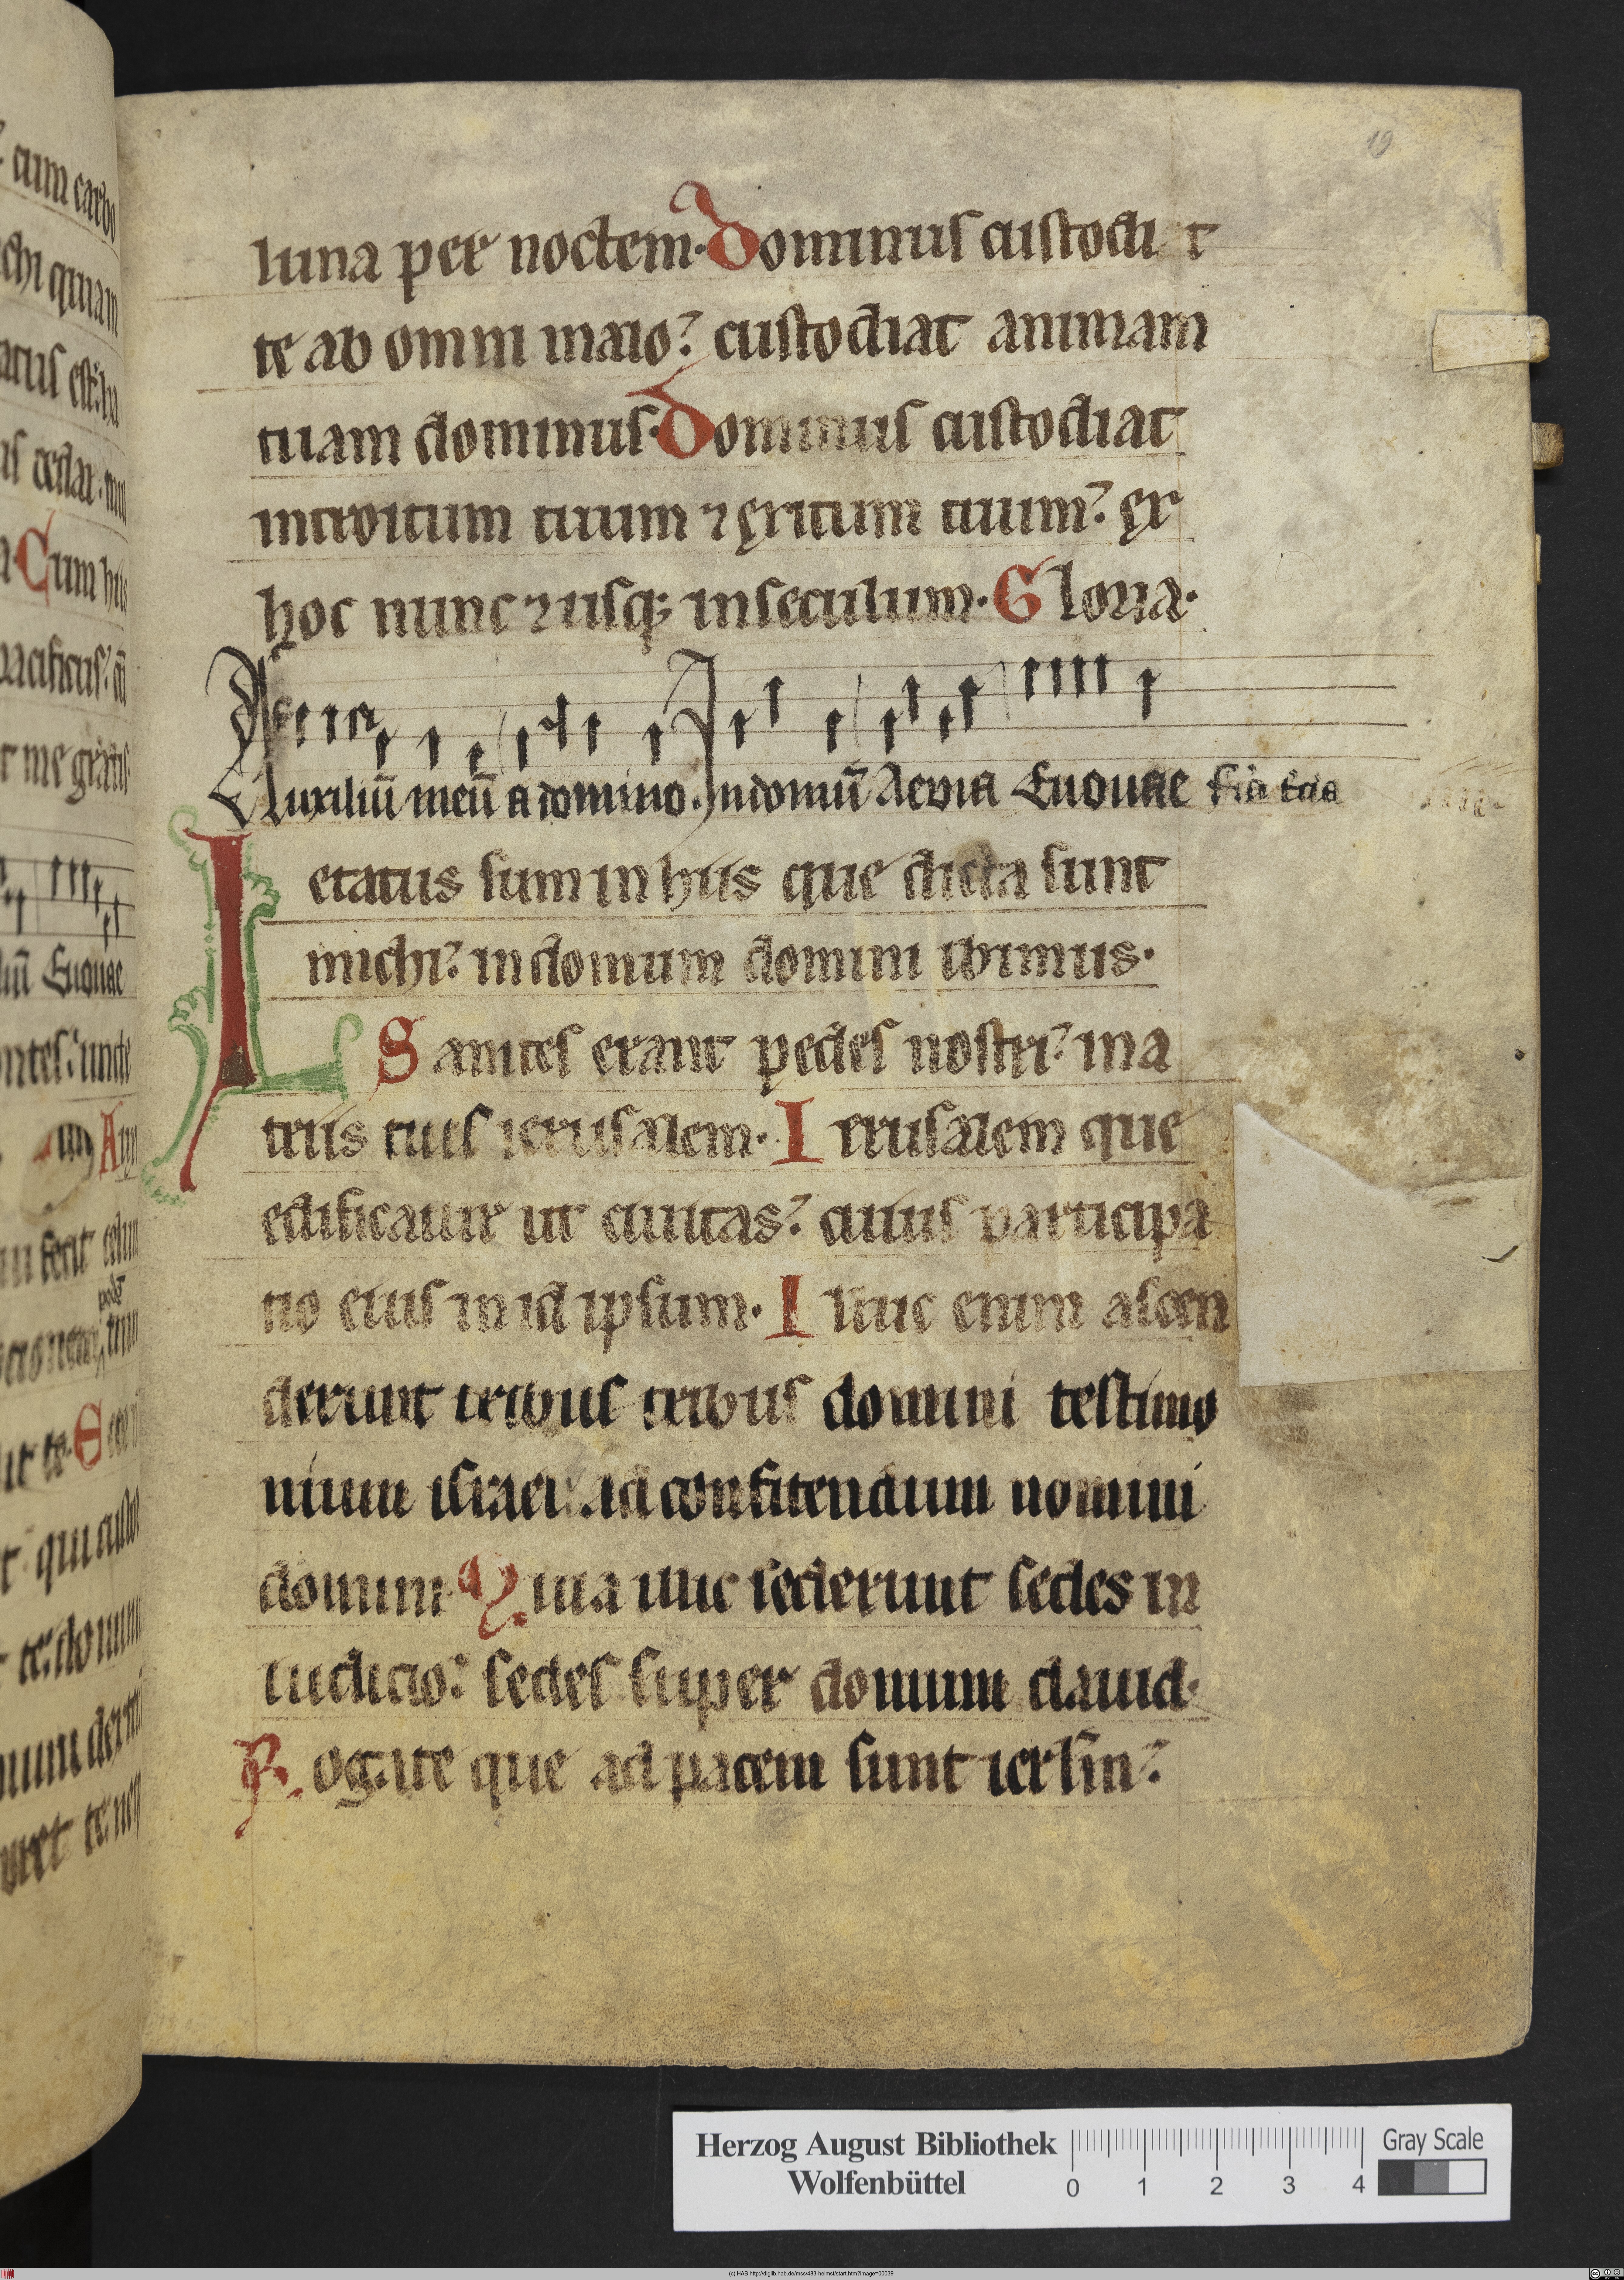 19
luna per noctem. Dominus custodi t
te ab omni malo? custodiat animam
tuam dominus. Dominus custodiat
introitum tuum ⁊ exitum tuum? ex
hoc nunc ⁊ usq; in seculum. Gloria.
Auxiliū meū a domino. In domū Aevia Euouae
Letatus sum in hiis que dicta sunt
michi? in domum domini ibimus.
Stantes erant pedes nostri? in a
triis tuis ierusalem. Ierusalem que
edificatur ut ciuitas? cuius participa
tio eius in id ipsum. Illuc enim ascen
derunt tribus tribus domini testimo
nium israel: ad confitendum nomini
domini. Quia illic sederunt sedes in
iudicio? sedes super domum dauid.
Rogate que ad pacem sunt ierlm̄?
Herzog August Bibliothek
Wolfenbüttel
0 1 2 3 4
Gray Scale
(c) HAB http://diglib.hab.de/mss/483-helmst/start.htm?image=00039